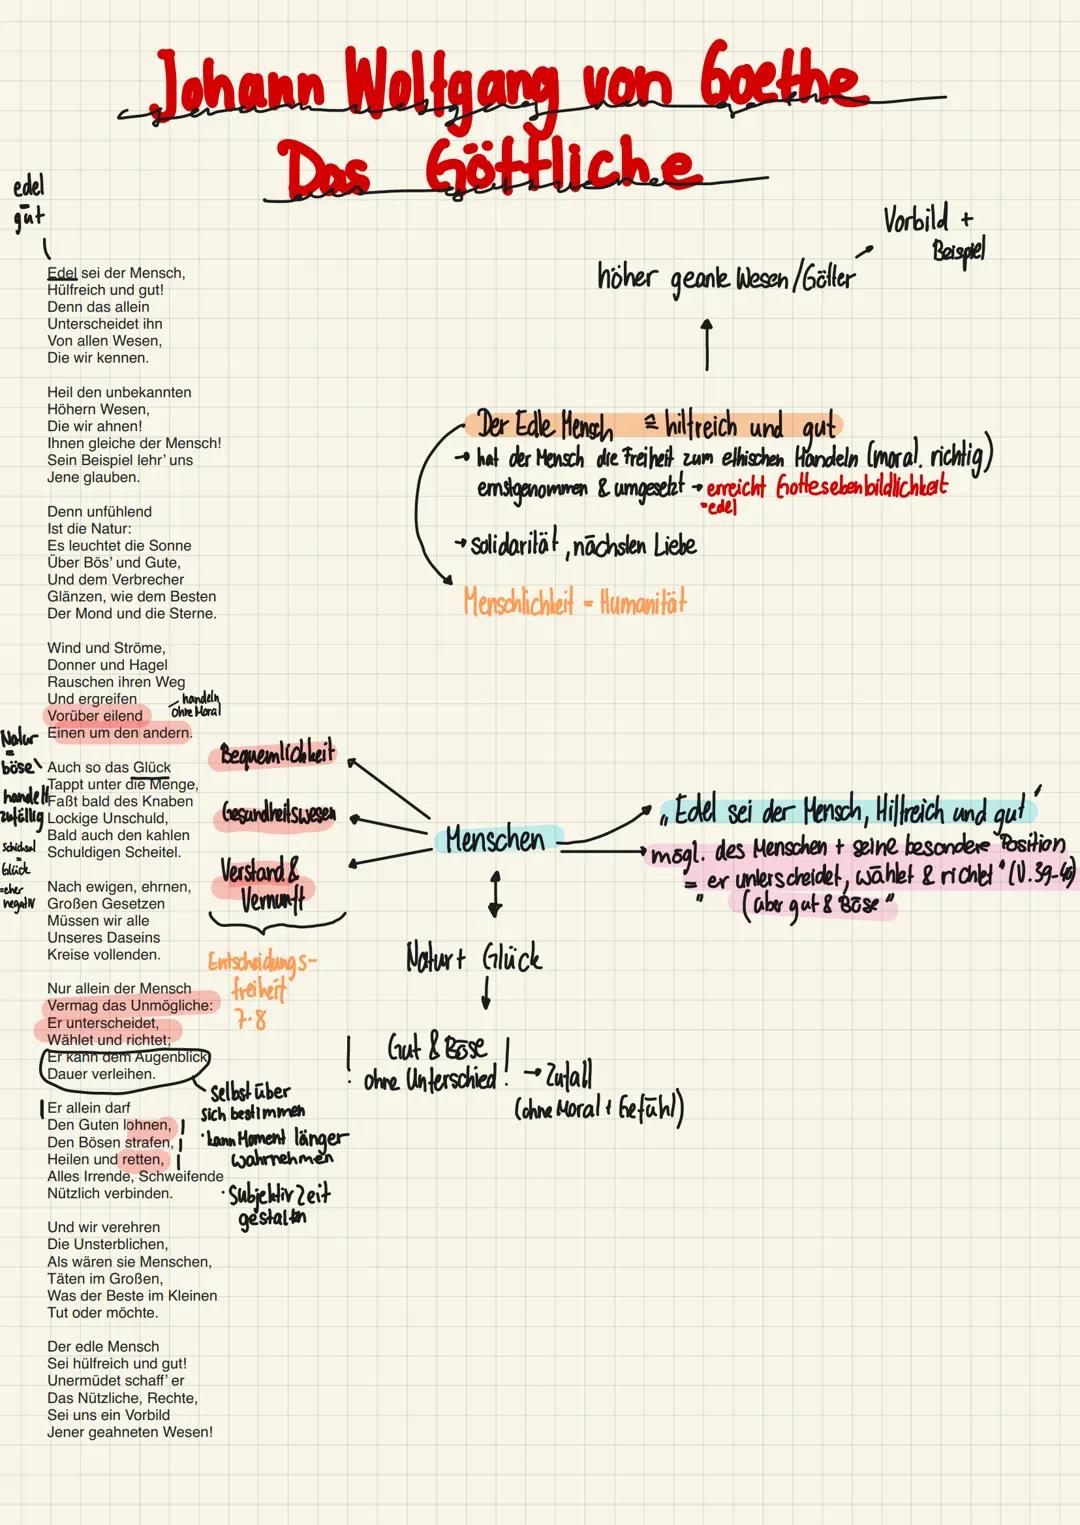 Johann Wolfgang von Goethe
Das Göttliche
edel
gut
Edel sei der Mensch,
Hülfreich und gut!
Denn das allein
Unterscheidet ihn
Von allen Wesen,
Die wir kennen.
Heil den unbekannten
Höhern Wesen,
Die wir ahnen!
Ihnen gleiche der Mensch!
Sein Beispiel lehr' uns
Jene glauben.
Denn unfühlend
Ist die Natur:
Es leuchtet die Sonne
Über Bös' und Gute,
Und dem Verbrecher
Glänzen, wie dem Besten
Der Mond und die Sterne.
Wind und Ströme,
Donner und Hagel
Rauschen ihren Weg
Und ergreifen
Vorüber eilend
Einen um den andern.
handeln
ohne Moral
Natur
=
böse
handelt
zufällig
Schicksal
=
Glück
=eher
negativ
Auch so das Glück
Tappt unter die Menge,
Faßt bald des Knaben
Lockige Unschuld,
Bald auch den kahlen
Schuldigen Scheitel.
Nach ewigen, ehrnen,
Großen Gesetzen
Müssen wir alle
Unseres Daseins
Kreise vollenden.
Nur allein der Mensch
Vermag das Unmögliche:
Er unterscheidet,
Wählet und richtet;
Er kann dem Augenblick
Dauer verleihen.
Er allein darf
Den Guten lohnen,
Den Bösen strafen,
Heilen und retten,
Alles Irrende, Schweifende
Nützlich verbinden.
selbst über
sich bestimmen
· kann Moment länger
wahrnehmen
· Subjektiv Zeit
gestalten
Und wir verehren
Die Unsterblichen,
Als wären sie Menschen,
Täten im Großen,
Was der Beste im Kleinen
Tut oder möchte.
Der edle Mensch
Sei hülfreich und gut!
Unermüdet schaff' er
Das Nützliche, Rechte,
Sei uns ein Vorbild
Jener geahneten Wesen!
Vorbild +
Beispiel
höher geante Wesen/Götter
Der Edle Mensch ≙ hilfreich und gut
→ hat der Mensch die Freiheit zum ethischen Handeln (moral. richtig)
ernstgenommen & umgesetzt → erreicht Gottesebenbildlichkeit
=edel
→ solidarität, nächsten Liebe
Menschlichkeit = Humanität
Bequemlichkeit
Gesundheitswesen
Verstand &
Vernunft
Entscheidungs-
freiheit
7.8
Menschen
„Edel sei der Mensch, Hilfreich und gut"
mögl. des Menschen + seine besondere Position
= „er unterscheidet, wählet & richtet" (V. 39-40)
(über gut & Böse"
Natur + Glück
! Gut & Böse !
ohne Unterschied → Zufall
(ohne Moral + Gefühl)